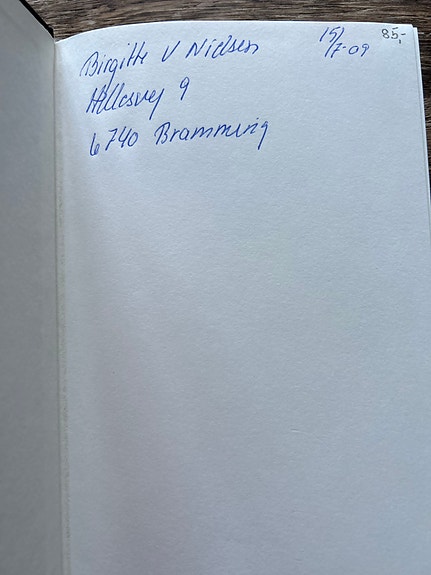 Birgitte V Nielsen 15/7-09 85,-
9
6740 Bramming